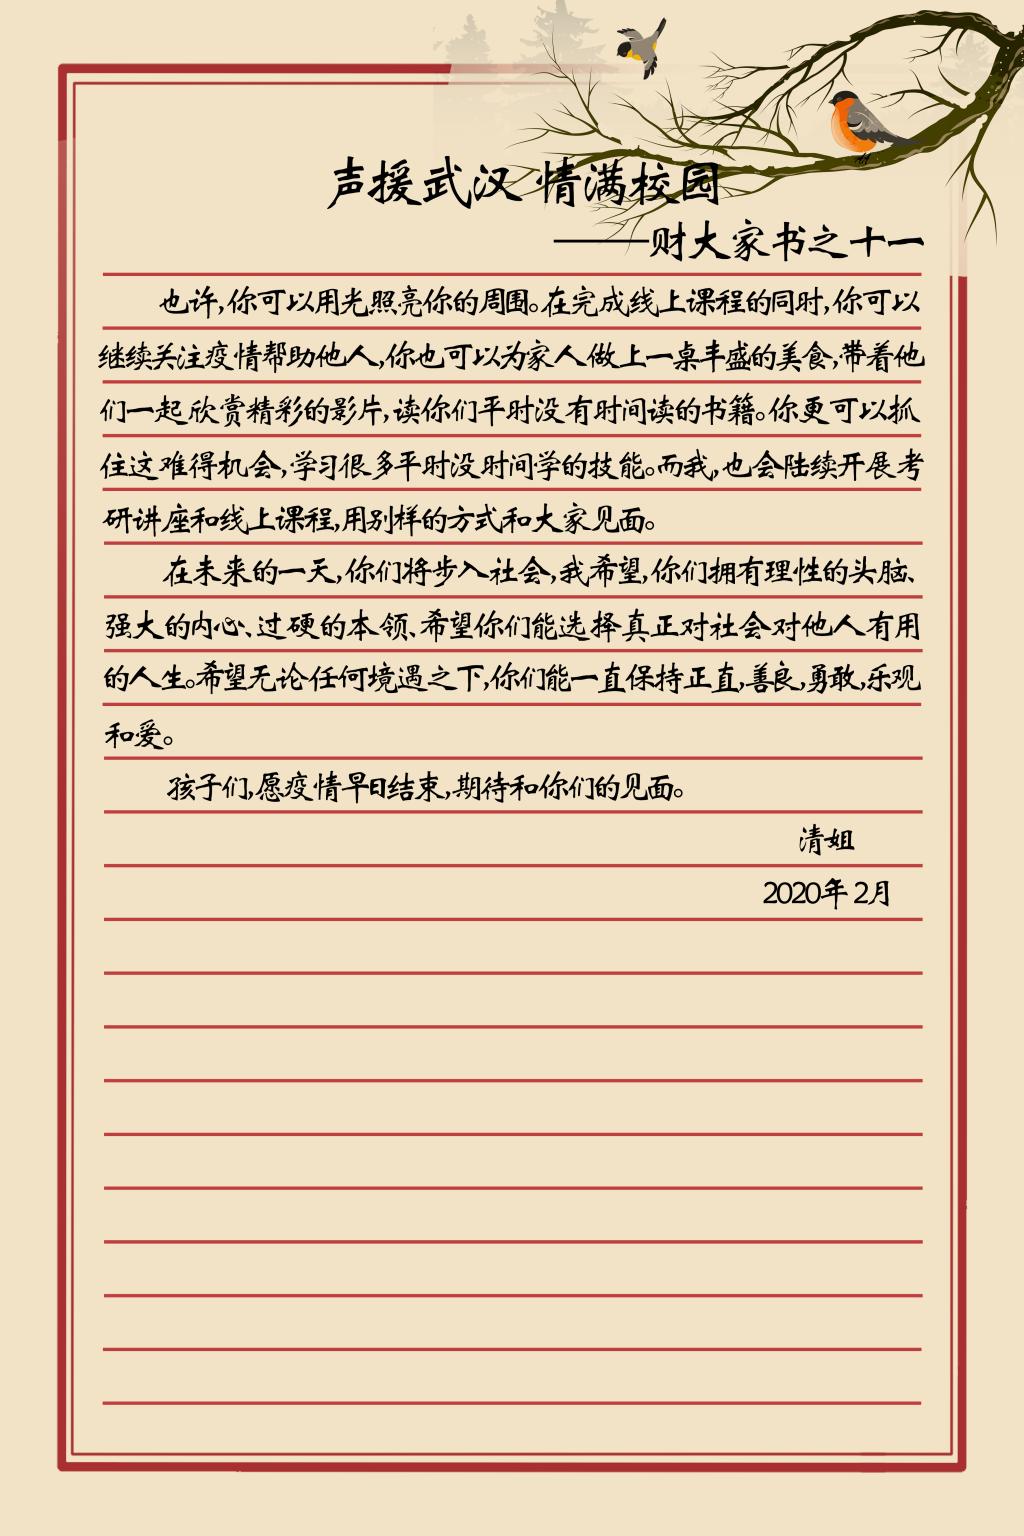 声援武汉 情满校园
——财大家书之十一
也许,你可以用光照亮你的周围。在完成线上课程的同时,你可以
继续关注疫情帮助他人,你也可以为家人做上一桌丰盛的美食,带着他
们一起欣赏精彩的影片,读你们平时没有时间读的书籍。你更可以抓
住这难得机会,学习很多平时没时间学的技能。而我,也会陆续开展考
研讲座和线上课程,用别样的方式和大家见面。
在未来的一天,你们将步入社会,我希望,你们拥有理性的头脑、
强大的内心、过硬的本领、希望你们能选择真正对社会对他人有用
的人生。希望无论任何境遇之下,你们能一直保持正直,善良,勇敢,乐观
和爱。
孩子们,愿疫情早日结束,期待和你们的见面。
清姐
2020年2月